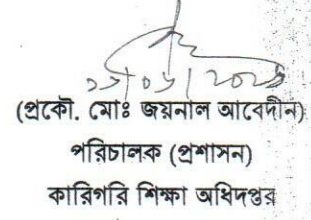 (প্রকৌ. মোঃ জয়নাল আবেদীন)
পরিচালক (প্রশাসন)
কারিগরি শিক্ষা অধিদপ্তর